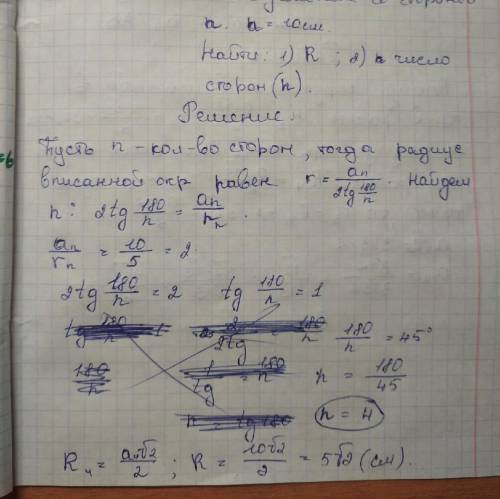 со стороной
a. a = 10 см.
Найти: 1) R ; 2) число
сторон (n).
Решение.
Пусть n - кол-во сторон, тогда радиус
вписанной окр равен r = aₙ / 2tg 180/n. Найдем
n: 2tg 180/n = aₙ/rₙ.
aₙ/rₙ = 10/5 = 2
2tg 180/n = 2 tg 180/n = 1
180/n = 45°
n = 180/45
n = 4
R₄ = a√2/2 ; R = 10√2/2 = 5√2 (см).